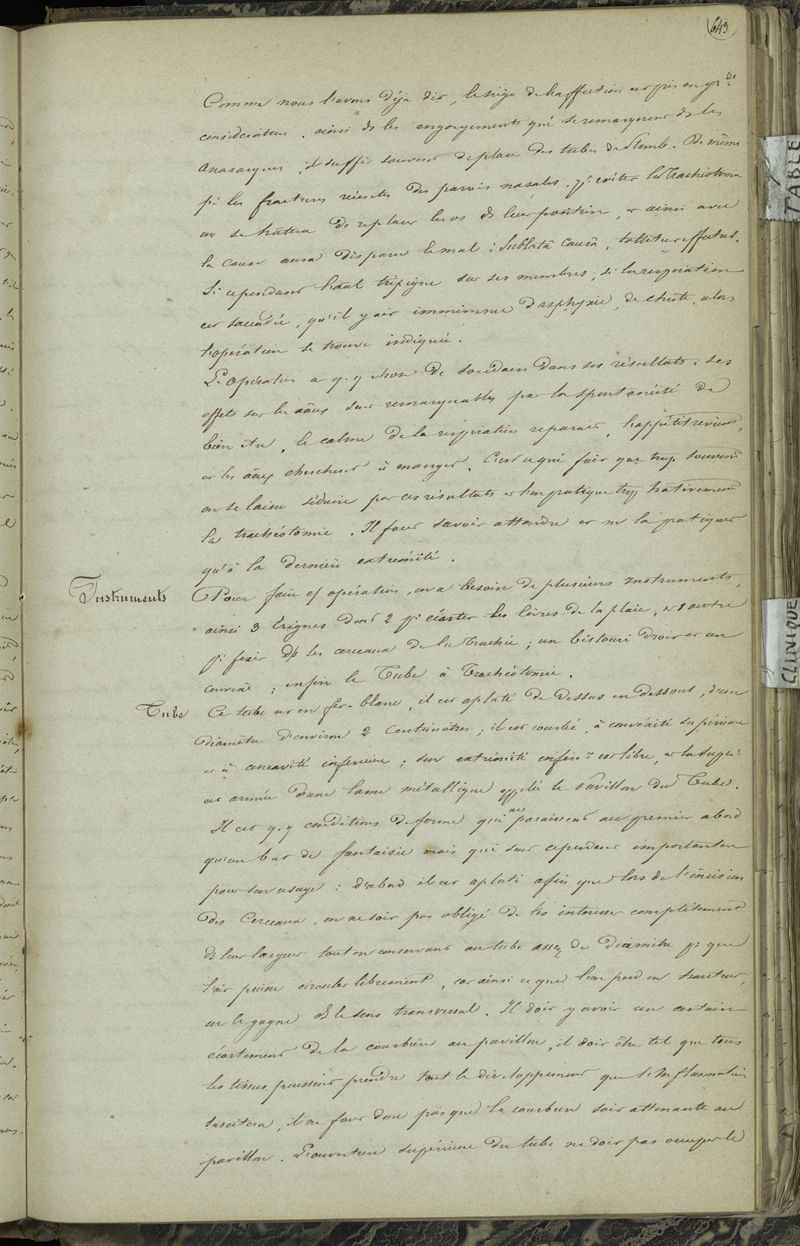 643
Comme nous l'avons déjà dit, le siège de l'affection est pris en gr.de
considération, ainsi ds les engorgements qui se remarquent ds les
anasarques, il suffit souvent de placer des tubes de plomb. De même
pr les fractures récentes des parois nasales. pr éviter la trachéotomie
on se hâtera de replacer les os ds leur position, et ainsi avec
la cause aura disparu le mal : Sublatâ causâ, tollitur effectus.
Si cependant l'aal trépigne sur ses membres, si la respiration
est saccadée, qu'il y ait imminence d'asphyxie, de chute, alors
l'opération se trouve indiquée.
L'opération a q.q chose de soudain dans ses résultats. Ses
effets sur les aaux sont remarquables par la spontanéité de
bien être, le calme de la respiration reparait, l'appétit revient,
et les aaux cherchent à manger. C'est ce qui fait que trop souvent
on se laisse séduire par ces résultats et l'on pratique trop hâtivement
la trachéotomie. Il faut savoir attendre et ne la pratiquer
qu'à la dernière extrémité.
Instruments
Pour faire cette opération, on a besoin de plusieurs instruments,
ainsi 3 érignes dont 2 pr écarter les lèvres de la plaie, et 1 autre
pr fixer les cerceaux de la trachée ; un bistouri droit et un
convexe ; enfin le Tube à Trachéotomie.
Tube
Ce tube est en fer-blanc, il est aplati de dessus en dessous, d'un
diamètre d'environ 2 centimètres ; il est courbé, à convexité supérieure
et à concavité inférieure ; son extrémité inférre est libre, et la supér.
est armée d'une lame métallique appelée le pavillon du Tube.
Il est q.q conditions de forme qui ne paraissent au premier abord
qu'un but de fantaisie mais qui sont cependant importantes
pour son usage : d'abord il est aplati afin que lors de l'incision
des cerceaux, on ne soit pas obligé de les intéresser complètement
ds leur largeur tout en conservant au tube assez de diamètre pr que
l'air puisse circuler librement, car ainsi ce que l'on perd en hauteur,
on le gagne ds le sens transversal. Il doit y avoir un certain
écartement de la courbure au pavillon, il doit être tel que tous
les tissus puissent prendre tout le développement que l'inflammation
suscitera, il ne faut donc pas que la courbure soit attenante au
pavillon. L'ouverture supérieure du tube ne doit pas occuper le
TABLE
CLINIQUE